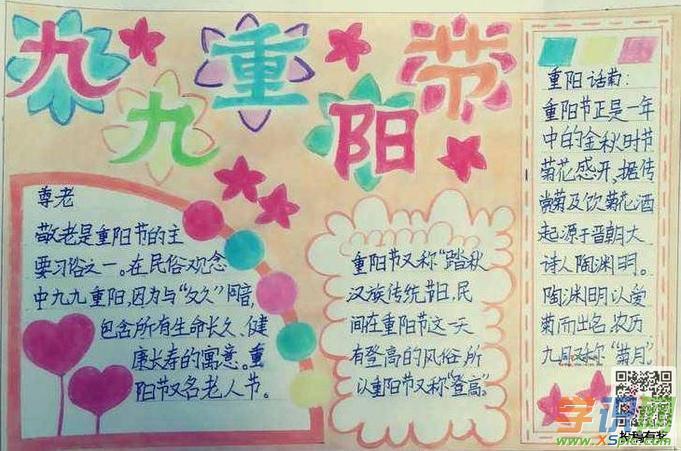 九九重阳节
尊老
敬老是重阳节的主
要习俗之一。在民俗观念
中九九重阳,因为与“久久”同音,
包含所有生命长久、健
康长寿的寓意。重
阳节又名老人节。
重阳节又称“踏秋
汉族传统节日,民
间在重阳节这一天
有登高的风俗,所
以重阳节又称“登高”。
重阳话菊:
重阳节正是一年
中的金秋时节
菊花盛开、据传
赏菊及饮菊花酒
起源于晋朝大
诗人陶渊明。
陶渊明以爱
菊而出名,农历
九月又称“菊月”。
学识网
www.XSplc.com
扫码有奖